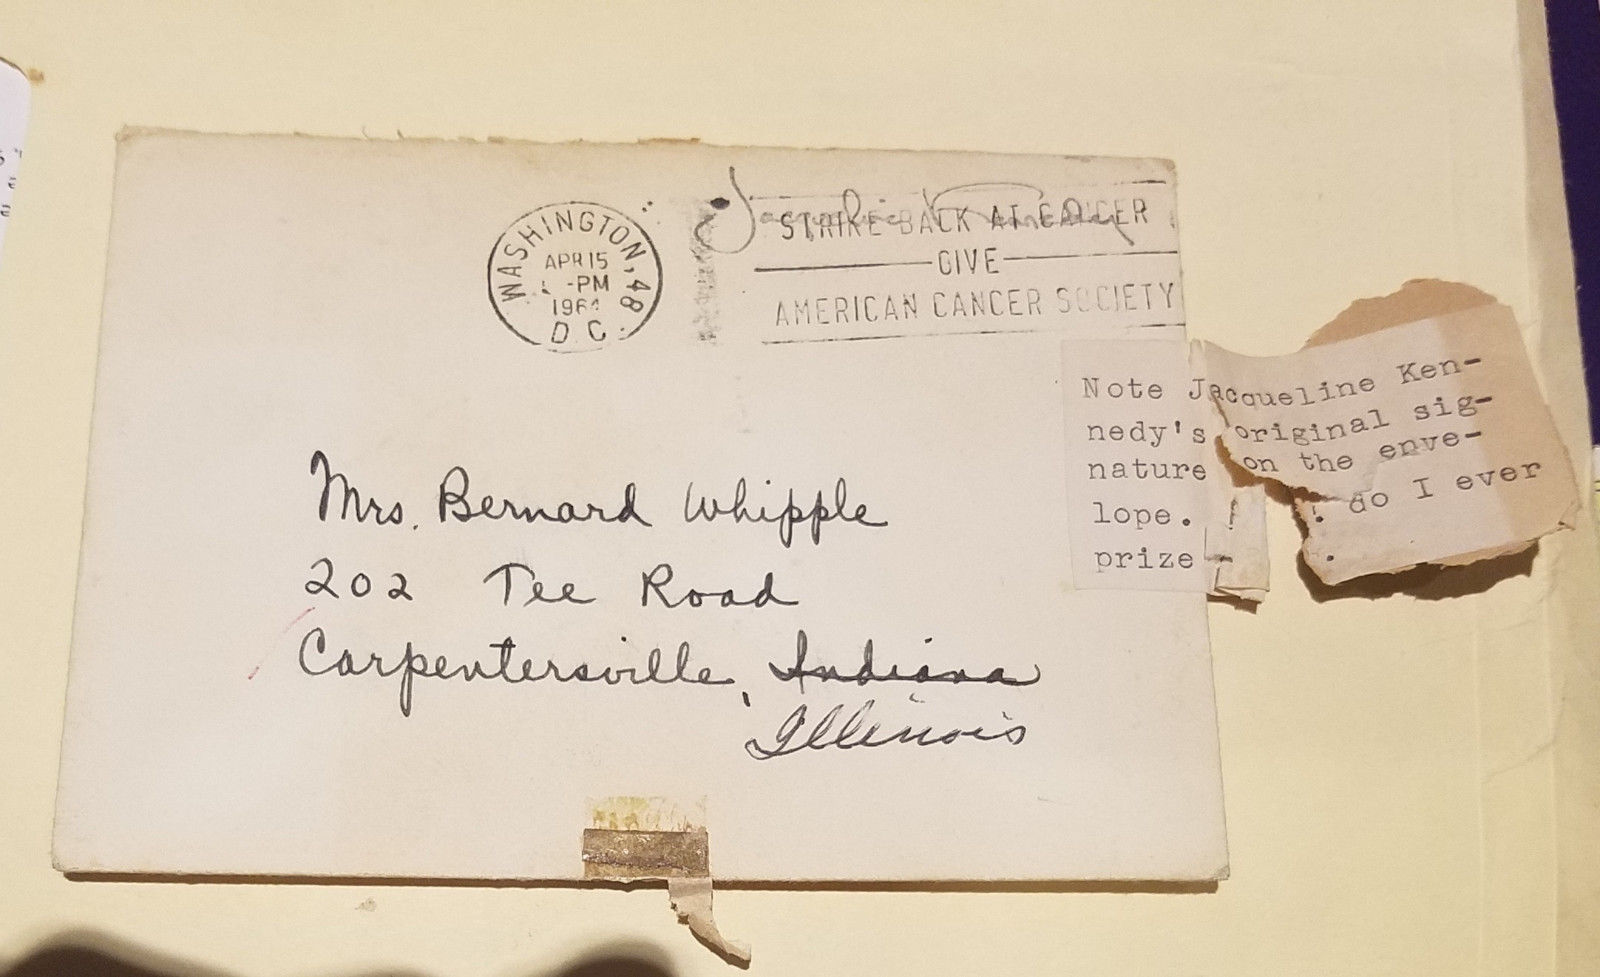 WASHINGTON, 48
APR 15
-PM
1964
D. C.
Jacqueline Kennedy
STRIKE BACK AT CANCER
GIVE
AMERICAN CANCER SOCIETY
Note Jacqueline Ken-
nedy's original sig-
nature on the enve-
lope. ! ! do I ever
prize - .
Mrs. Bernard Whipple
202 Tee Road
Carpentersville, Indiana
Illinois